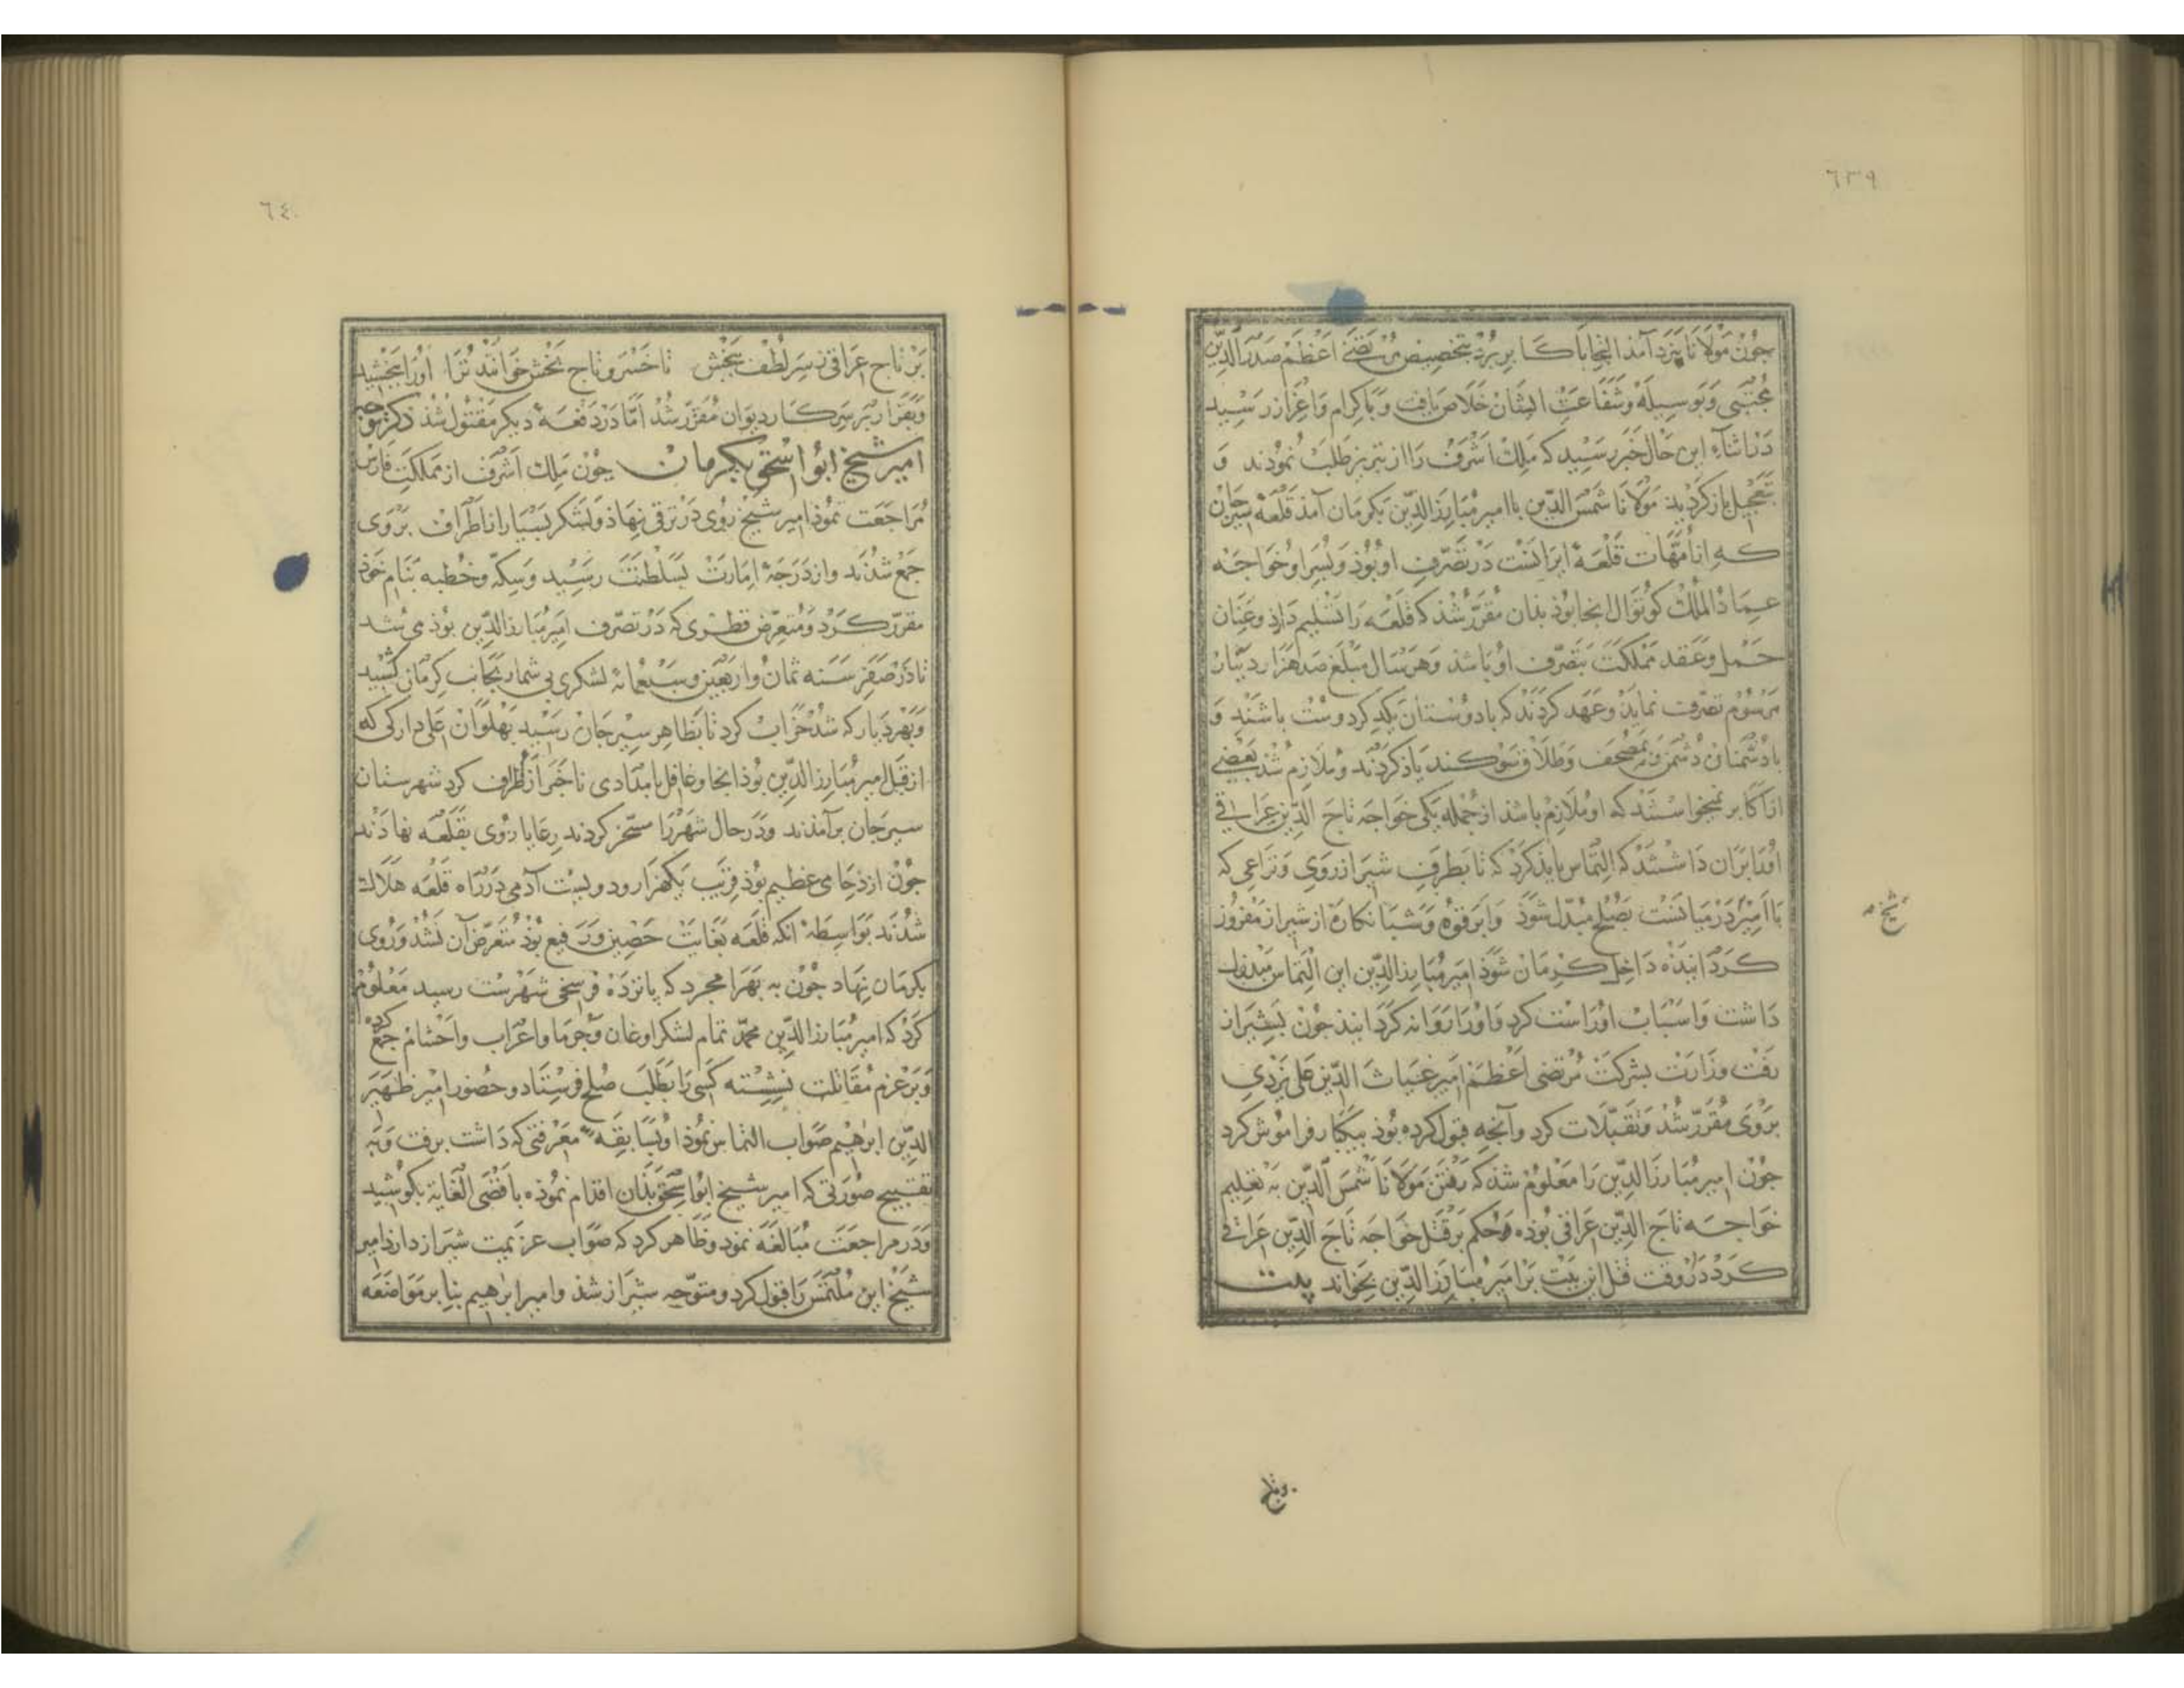 ٦٣٩
جون مولانا بیزد آمذ التجا باکابر برد بتخصیص مرتضی اعظم صدر الدین
مجتبی و بوسیله و شفاعت ایشان خلاص یافت و باکرام و اعزاز رسید
در اثناء این حال خبر رسید که ملک اشرف را از تبریز طلب نموذند و
بتعجیل بازکردید مولانا شمس الدین با امیر مبارز الدین بکرمان آمذ قلعه سیرجان
که از امهات قلعهٔ ایرانست در تصرف او بوذ و بسر او خواجه
عماذ الملک کوتوال انجا بوذ بذان مقرر شذ که قلعه را تسلیم دارذ و عنان
حل و عقد مملکت بتصرف او باشذ و هر سال مبلغ صد هزار دینار
مرسوم تصرف نمایذ و عهد کردند که با دوستان یکدیکر دوست باشند و
با دشمنان دشمن و بمصحف و طلاق سوکند یاذ کردند و ملازم شذ بعضی
از اکابر نمیخواستند که او ملازم باشذ از جمله یکی خواجه تاج الدین عراقی
اورا بران داشتند که التماس بایذ کرد که تا بطرف شیراز روی و نزاعی که
با امیر در میانست بصلح مبدل شوذ و ابرقوه و شبانکاره از شیراز مفروز
شیخ
کردانیذه داخل کرمان شوذ امیر مبارز الدین این التماس مبذول
داشت و اسباب او راست کرد و اورا روانه کردانیذ جون بشیراز
رفت وزارت بشرکت مرتضی اعظم امیر غیاث الدین علی یزدی
بروی مقرر شذ و تقبلات کرد و آنچه قبول کرده بوذ بیکبار فراموش کرد
جون امیر مبارز الدین را معلوم شذ که رفتن مولانا شمس الدین به تعلیم
خواجه تاج الدین عراقی بوذه حکم بر قتل خواجه تاج الدین عراقی
کرد در وقت قتل این بیت بر امیر مبارز الدین بخواند بیت
برتاج
٦٤٠
بر تاج عراقی ز سر لطف ببخش تا خسرو تاج بخش خوانند ترا اورا ببخشید
و بقرار بر سر کار دیوان مقرر شذ اما در دفعهٔ دیکر مقتول شذ ذکر توجه
امیر شیخ ابو اسحق بکرمان جون ملک اشرف از مملکت فارس
مراجعت نموذ امیر شیخ روی در ترقی نهاذ و لشکر بسیار از اطراف بروی
جمع شذند و از درجهٔ امارت بسلطنت رسید و سکه و خطبه بنام خوذ
مقرر کرد و متعرض قطری که در تصرف امیر مبارز الدین بوذ می شد
تا در صفر سنه ثمان و اربعین و سبعمائه لشکری بی شمار بجانب کرمان کشید
و بهر دیار که شد خراب کرد تا بظاهر سیرجان رسید بهلوان علی دارکی که
از قبل امیر مبارز الدین بوذ انجا و غافل بامدادی تا خبر از طرف کرد شهرستان
سیرجان برآمذند و در حال شهر را مسخر کردند رعایا روی بقلعه نهادند
جون ازدحامی عظیم بوذ قریب یکهزار و دویست آدمی در راه قلعه هلاک
شدند بواسطه انکه قلعه بغایت حصین و رفیع بوذ متعرض آن نشد و روی
بکرمان نهاد جون به بهرامجرد که بانزده فرسخی شهرست رسید معلوم
کرد که امیر مبارز الدین محمد تمام لشکر اوغان و جرما و اعراب و احشام جمع کرده
و بر عزم مقاتلت نشسته کسی را بطلب صلح فرستاد و حضور امیر ظهیر
الدین ابرهیم صواب التماس نموذ او بسابقهٔ معرفتی که داشت برفت و به
تقبیح صورتی که امیر شیخ ابو اسحق بذان اقدام نموذه باقصی الغایة بکوشید
و در مراجعت مبالغه نمود و ظاهر کرد که صواب عزیمت شیراز دارذ امیر
شیخ این ملتمس را قبول کرد و متوجه شیراز شذ و امیر ابرهیم بنا بر مواضعه